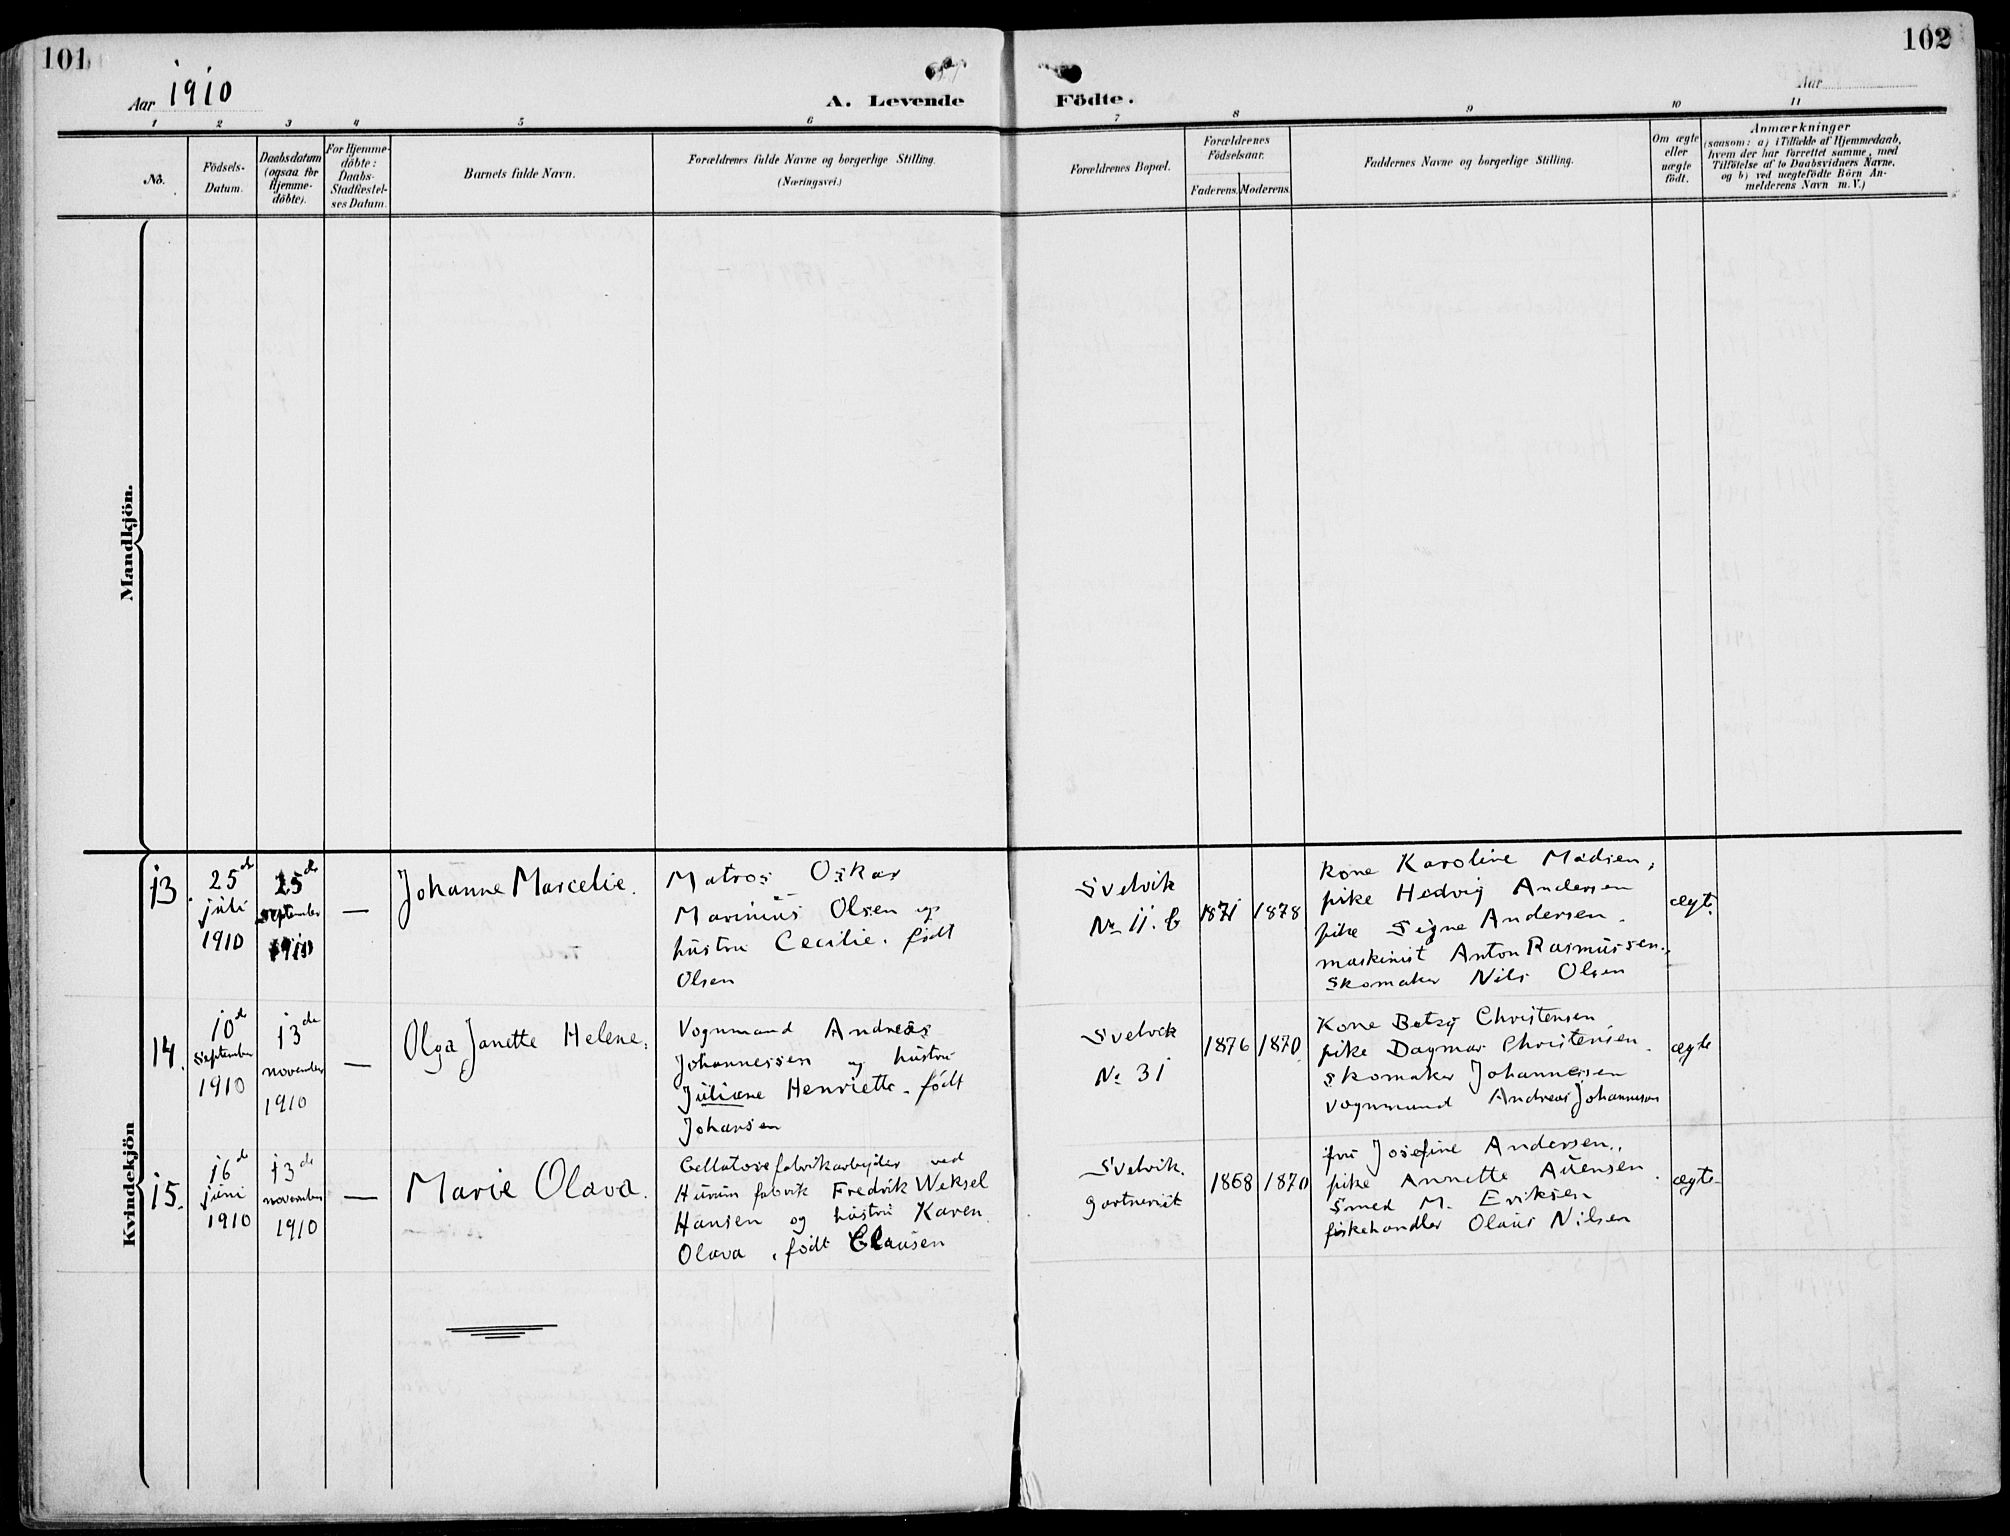 101
102
Aar 1910
A. Levende Födte.
Aar
1 2 3 4 5 6 7 8 9 10 11
No.
Födsels-
Datum.
Daabsdatum
(ogsaa for
Hjemme-
döbte).
For Hjemme-
döbte:
Daabs-
Stadfæstel-
ses Datum.
Barnets fulde Navn.
Forældrenes fulde Navne og borgerlige Stilling.
(Næringsvei.)
Forældrenes Bopæl.
Forældrenes
Födselsaar.
Faderens. Moderens.
Faddernes Navne og borgerlige Stilling.
Om ægte
eller
uægte
födt.
Anmærkninger
(saasom: a) i Tilfælde af Hjemmedaab,
hvem der har forrettet samme, med
Tilföielse af to Daabsvidners Navne,
og b) ved uægtefödte Börn An-
melderens Navn m. V.)
Mandkjön.
Kvindekjön
13.
25de
juli
1910
25de
september
1910
—
Johanne Marcelie.
Matros Oskar
Marinius Olsen og
hustru Cecilie. født
Olsen
Svelvik
No 11. b
1871
1878
kone Karoline Madsen,
pike Hedvig Andersen
pike Signe Andersen.
maskinist Anton Rasmussen.,
skomaker Nils Olsen
ægt.
14.
10de
september
1910
13de
november
1910
—
Olga Janette Helene.
Vognmand Andreas
Johannessen og hustru
Juliane Henriette. født
Johansen
Svelvik
No 31
1876
1870
Kone Betsy Christensen
pike Dagmar Christensen.
skomaker Johannessen
vognmand Andreas Johannesen
ægte
15.
16de
juni
1910
13de
november
1910
—
Marie Olava.
Cellulosefabrikarbeider ved
Hurum fabrik Fredrik Weksel
Hansen og hustru Karen
Olava, født Clausen
Svelvik.
gartneriet
1868
1870
fru Josefine Andersen.,
pike Annette Auensen.
Smed M. Eriksen
fiskehandler Olaus Nilsen
ægte